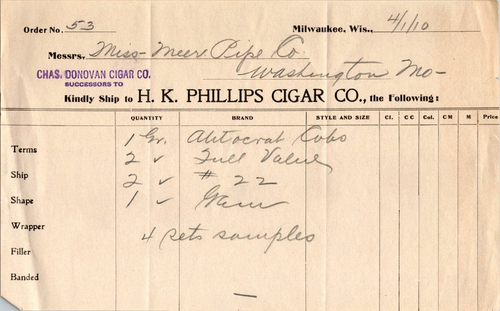 Order No. 53 Milwaukee, Wis., 4/1/10
Messrs. Miss-Meer. Pipe Co.
CHAS. DONOVAN CIGAR CO. Washington Mo-
SUCCESSORS TO
Kindly Ship to H. K. PHILLIPS CIGAR CO., the Following:
QUANTITY BRAND STYLE AND SIZE Cl. C C Col. C M M Price
Terms 1 Gr. Autocrat Cobs
2 ✓ Full Value
Ship 2 ✓ # 22
Shape 1 ✓ Gem
Wrapper 4 sets samples
Filler
Banded —